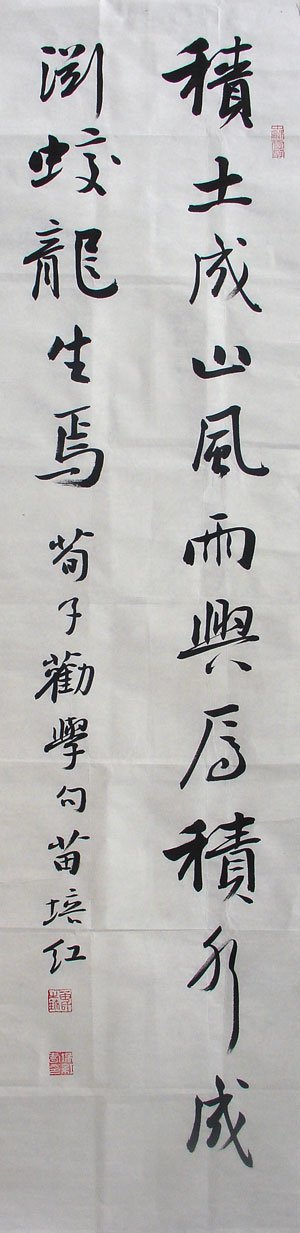 積土成山風雨興焉積水成
渕蛟龍生焉 荀子勸學句苗培红